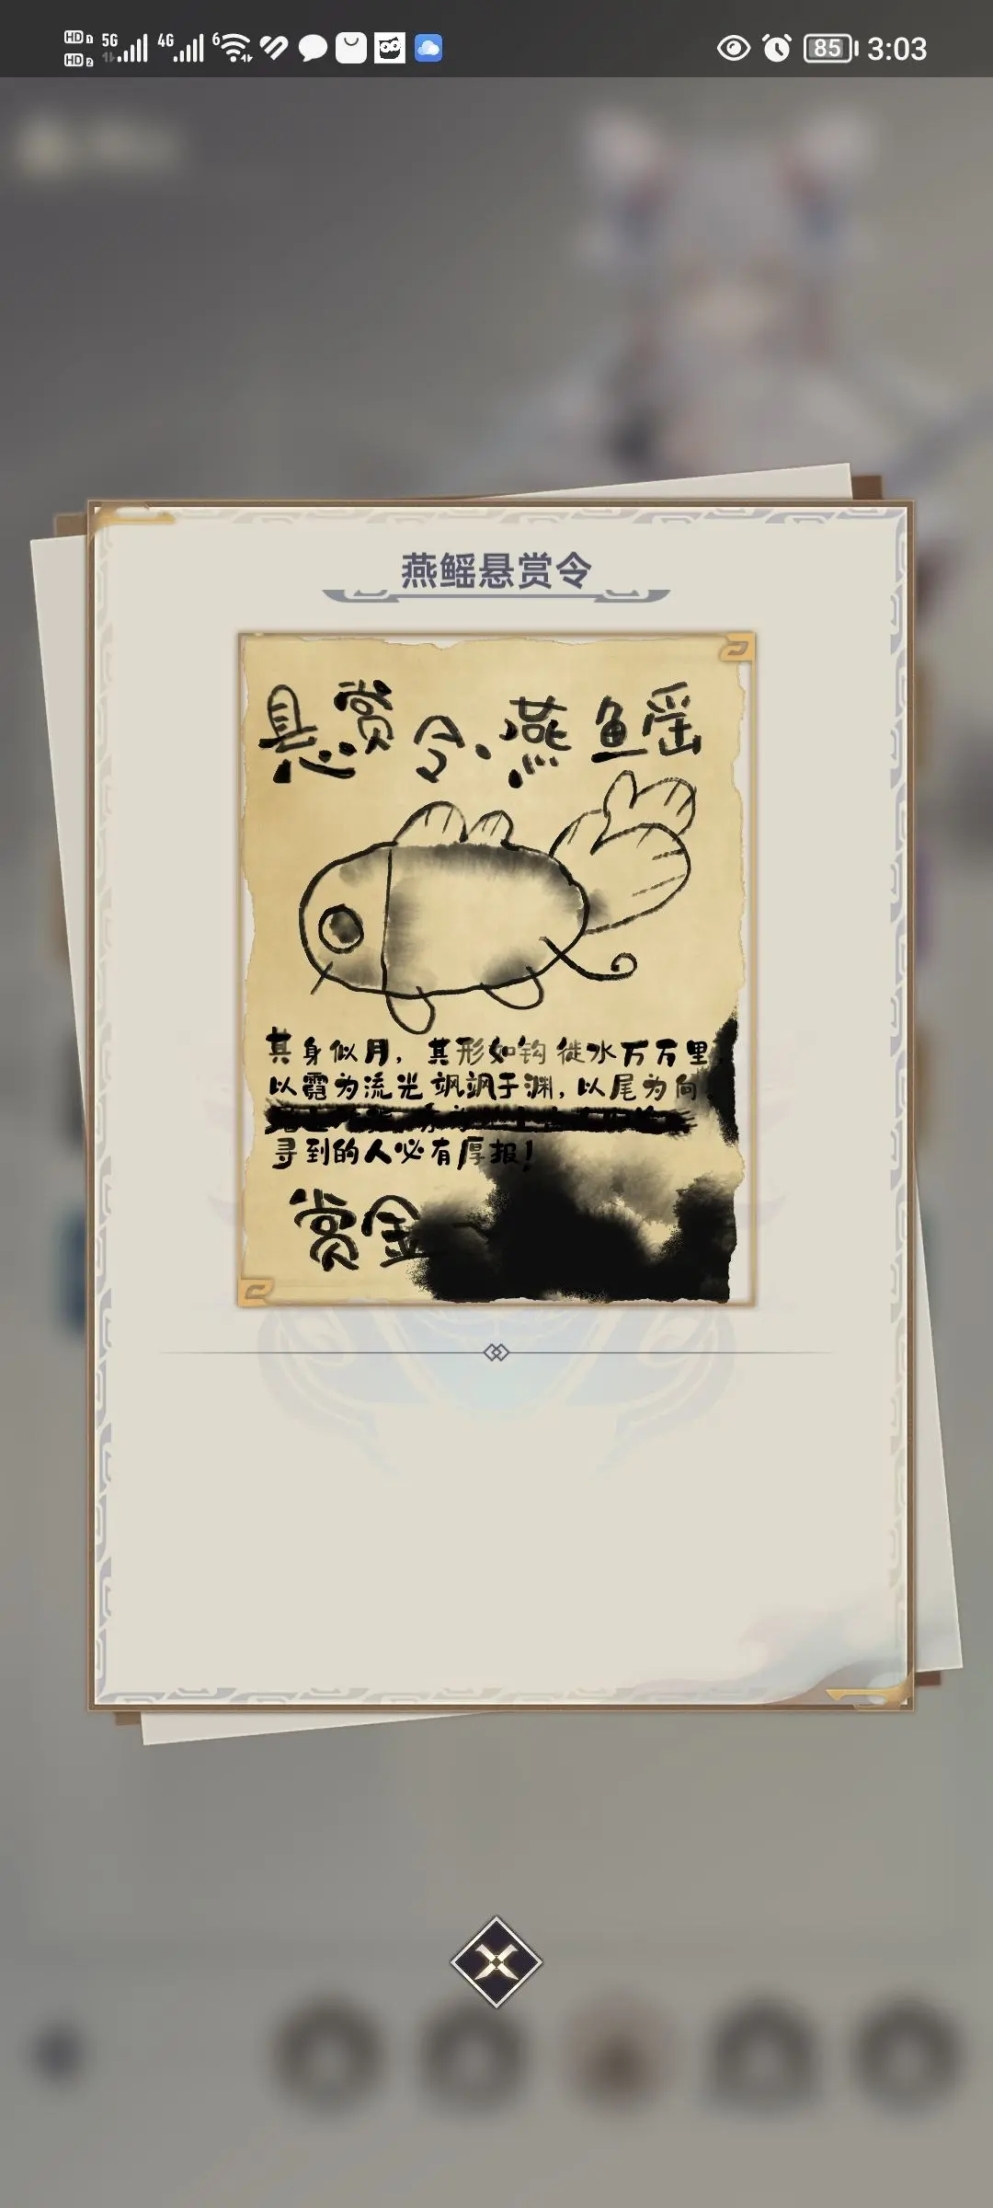 HD 1 5G 4G 6 85 3:03
HD 2
燕鳐悬赏令
悬赏令·燕鳐
其身似月，其形如钩 徙水万万里
以霞为流光 飒飒于渊，以尾为向
寻到的人必有厚报！
赏金